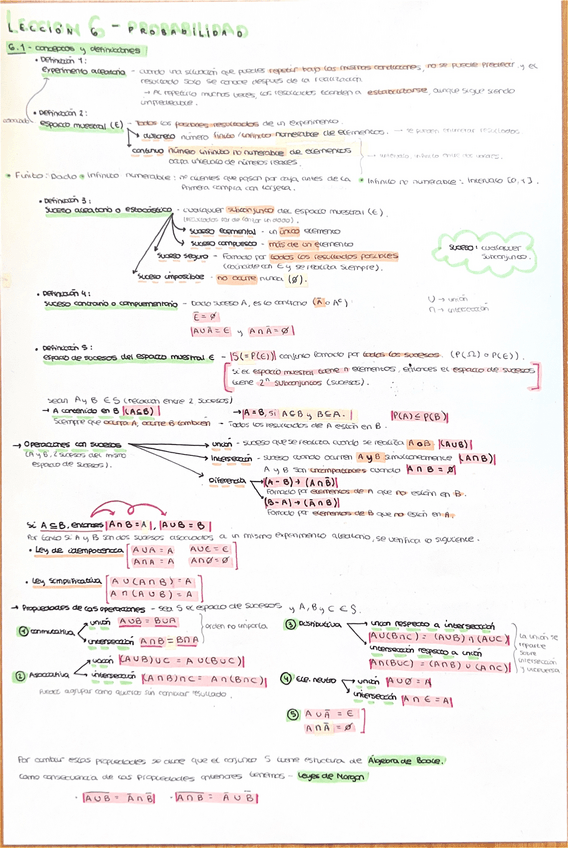 LECCIÓN 6 - PROBABILIDAD
6.1 - conceptos y definiciones
• Definición 1:
experimento aleatorio - cuando una situación que puedes repetir bajo las mismas condiciones, no se puede predecir y el
resultado solo se conoce después de la realización
→ Al repetirlo muchas veces, los resultados tienden a estabilizarse, aunque sigue siendo
impredecible.
• Definición 2:
espacio muestral (E) - todos los posibles resultados de un experimento.
discreto número finito/infinito numerable de elementos.
continuo número infinito no numerable de elementos
cada intervalo de números reales.
• Finito: Dado • Infinito numerable: nº clientes que pasan por caja antes de la
primera compra con tarjeta.
• Infinito no numerable: Intervalo [0,1].
• Definición 3:
Suceso aleatorio o estocástico - cualquier subconjunto del espacio muestral (E).
suceso elemental - un único elemento
suceso compuesto - más de un elemento
suceso seguro - Formado por todos los resultados posibles
(coincide con E y se realiza siempre).
suceso imposible - no ocurre nunca (Ø).
suceso: cualquier
subconjunto.
• Definición 4:
suceso contrario o complementario - Dado suceso A, es lo contrario (Ā o Aᶜ)
Ē = Ø
|A∪Ā = E y A∩Ā = Ø|
U → unión
∩ → intersección
• Definición 5:
espacio de sucesos del espacio muestral E - |S(=P(E)| conjunto formado por todos los sucesos. (P(Ω) o P(E)).
Si el espacio muestral tiene n elementos, entonces el espacio de sucesos
tiene 2ⁿ subconjuntos (sucesos).
sean A y B ∈ S (relación entre 2 sucesos)
→ A contenido en B |(A⊆B)|
→ |A=B, si A⊆B y B⊆A.|
|P(A)≤P(B)|
Siempre que ocurra A, ocurre B también → Todos los resultados de A están en B.
→ Operaciones con sucesos
(A y B sucesos del mismo
espacio de sucesos).
unión - suceso que se realiza cuando se realiza A o B |(A∪B)|
Intersección - suceso cuando ocurren A y B simultáneamente |(A∩B)|
A y B son incompatibles cuando |A∩B = Ø|
Diferencia
|(A-B) → (A∩B̄)|
Formado por elementos de A que no están en B.
|(B-A) → (Ā∩B)|
Formado por elementos de B que no están en A.
Si A⊆B, entonces |A∩B=A|, |A∪B=B|
Por tanto si A y B son dos sucesos asociados a un mismo experimento aleatorio, se verifica lo siguiente.
• Ley de idempotencia
A∪A=A A∪E=E
A∩A=A A∩Ø=Ø
• Ley simplificativa
A∪(A∩B)=A
A∩(A∪B)=A
→ Propiedades de las operaciones - sea S el espacio de sucesos y A, B y C ∈ S.
① conmutativa
unión A∪B=B∪A
intersección A∩B=B∩A
orden no importa
② Asociativa
unión |(A∪B)∪C = A∪(B∪C)|
intersección |(A∩B)∩C = A∩(B∩C)|
Puedes agrupar como quieras sin cambiar resultado.
③ Distributiva
unión respecto a intersección
|A∪(B∩C) = (A∪B)∩(A∪C)|
intersección respecto a unión
|A∩(B∪C) = (A∩B)∪(A∩C)|
La unión se
reparte
sobre
intersección
y viceversa
④ Ele. neutro
unión |A∪Ø=A|
intersección |A∩E=A|
⑤ A∪Ā=E
A∩Ā=Ø
Por cumplir estas propiedades se dice que el conjunto S tiene estructura de Álgebra de Boole.
Como consecuencia de las propiedades anteriores tenemos - Leyes de Morgan
· |A̅∪̅B̅ = Ā∩B̄| · |A̅∩̅B̅ = Ā∪B̄|